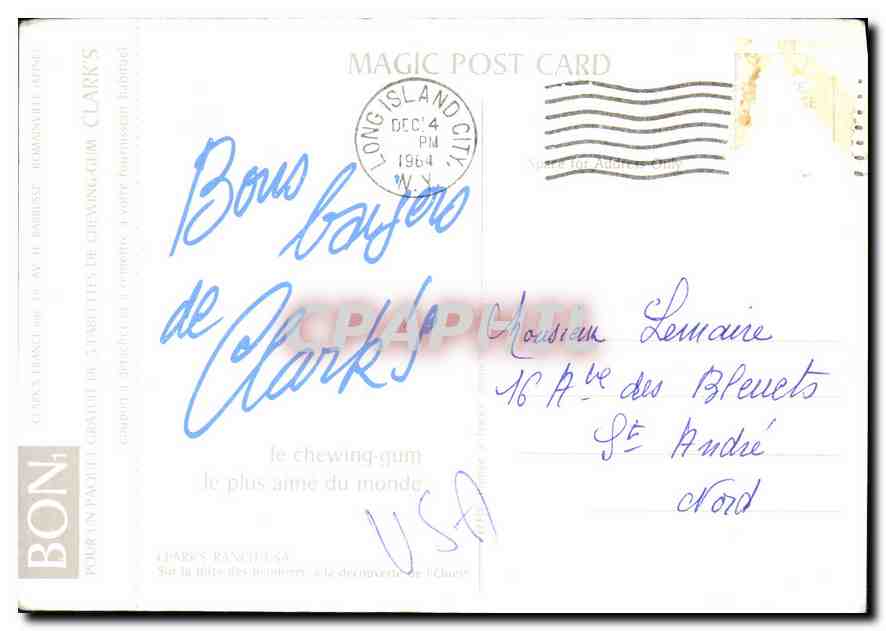 MAGIC POST CARD
LONG ISLAND CITY,
DEC 14
PM
1964
N.Y.
Space for Address Only
Bons
baisers
de
Clark's
CPAPHIL
Monsieur Lemaire
16 Ave des Bleuets
St André
Nord
le chewing-gum
le plus aimé du monde
USA
CLARK'S RANCH USA
Sur la Piste des Pionniers, à la découverte de l'Ouest
BON1
POUR UN PAQUET GRATUIT DE 5 TABLETTES DE CHEWING-GUM CLARK'S
coupon à détacher et à remettre à votre fournisseur habituel
CLARK'S FRANCE AV. H. BARBUSSE ROMAINVILLE